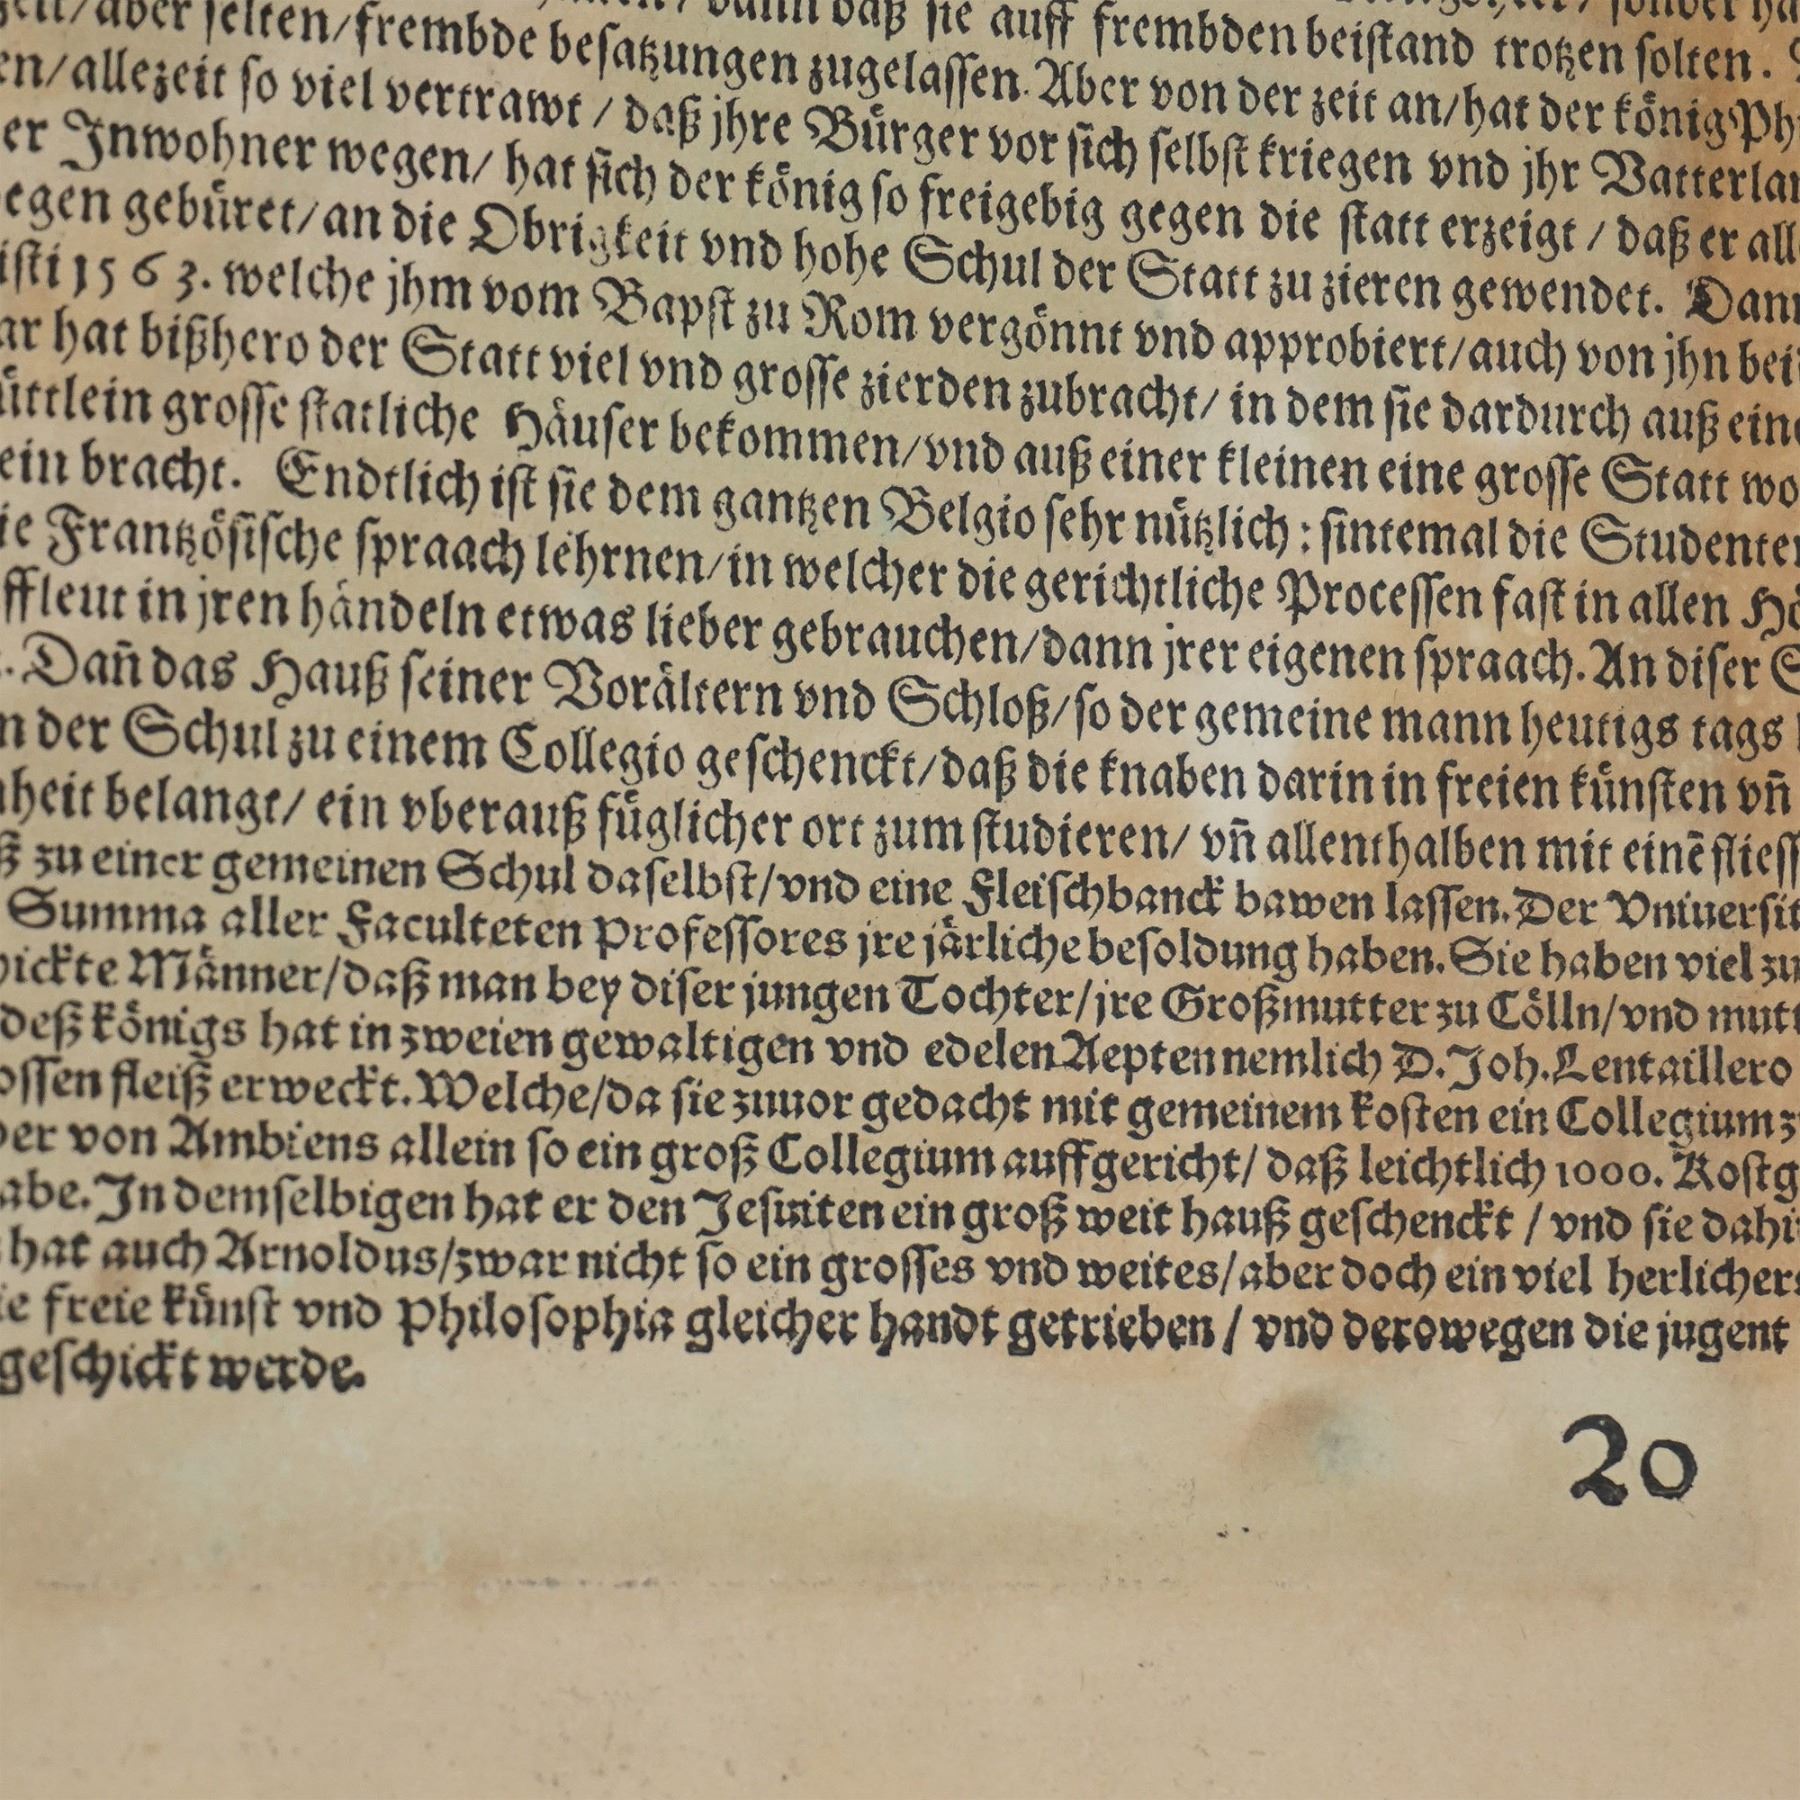 zeit/aber selten/frembde besatzungen zugelassen. Aber von der zeit an/hat der könig Ph
dann daß sie auff frembden beistand trotzen solten.
en/allezeit so viel vertrawt/daß jhre Bürger vor sich selbst kriegen vnd jhr Vatterlan
er Inwohner wegen/hat sich der könig so freigebig gegen die statt erzeigt/daß er all
egen gebüret/an die Obrigkeit vnd hohe Schul der Statt zu zieren gewendet. Dann
isti 1563. welche jhm vom Bapst zu Rom vergönnt vnd approbiert/auch von jhn bei
ar hat bißhero der Statt viel vnd grosse zierden zubracht/in dem sie dardurch auß eine
üttlein grosse statliche Häuser bekommen/vnd auß einer kleinen eine grosse Statt wo
ein bracht. Endtlich ist sie dem gantzen Belgio sehr nützlich: sintemal die Studenten
ie Frantzösische spraach lehrnen/in welcher die gerichtliche Processen fast in allen Hö
ffleut in jren händeln etwas lieber gebrauchen/dann jrer eigenen spraach. An diser S
. Dañ das Hauß seiner Vorältern vnd Schloß/so der gemeine mann heutigs tags
n der Schul zu einem Collegio geschenckt/daß die knaben darin in freien künsten vñ
nheit belangt/ein vberauß füglicher ort zum studieren/vñ allenthalben mit einē fliess
ß zu einer gemeinen Schul daselbst/vnd eine Fleischbanck bawen lassen. Der Vniuersit
Summa aller Faculteten Professores jre järliche besoldung haben. Sie haben viel zu
hickte Männer/daß man bey diser jungen Tochter/jre Großmutter zu Cölln/vnd mutt
deß königs hat in zweien gewaltigen vnd edelen Aepten nemlich D. Joh. Lentaillero
ossen fleiß erweckt. Welche/da sie zuuor gedacht mit gemeinem kosten ein Collegium z
der von Ambiens allein so ein groß Collegium auffgericht/daß leichtlich 1000. Kostg
abe. In demselbigen hat er den Jesuiten ein groß weit hauß geschenckt/vnd sie dahi
hat auch Arnoldus/zwar nicht so ein grosses vnd weites/aber doch ein viel herlichers
ie freie künst vnd Philosophia gleicher handt getrieben/vnd derowegen die jugent
geschickt werde.
20